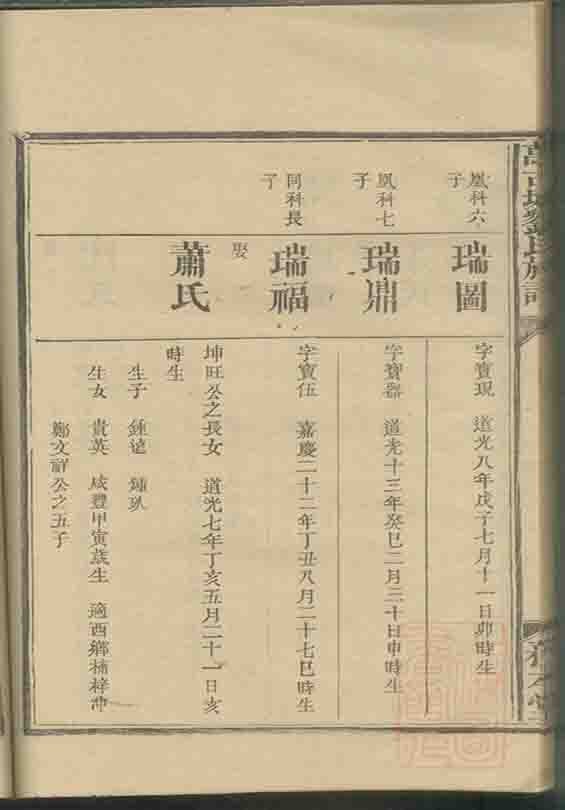 鳳科六子
瑞圖
字寶現 道光八年戊子七月十一日卯時生
鳳科七子
瑞鼎
字寶器 道光十三年癸巳二月三十日申時生
同科長子
瑞福
字寶伍 嘉慶二十二年丁丑八月二十七巳時生
娶
蕭氏
坤旺公之長女 道光七年丁亥五月二十一日亥
時生
生子 鍾
生女 貴英 咸豐甲寅歲生 適西鄉楠梓冲
鄭文祥公之五子